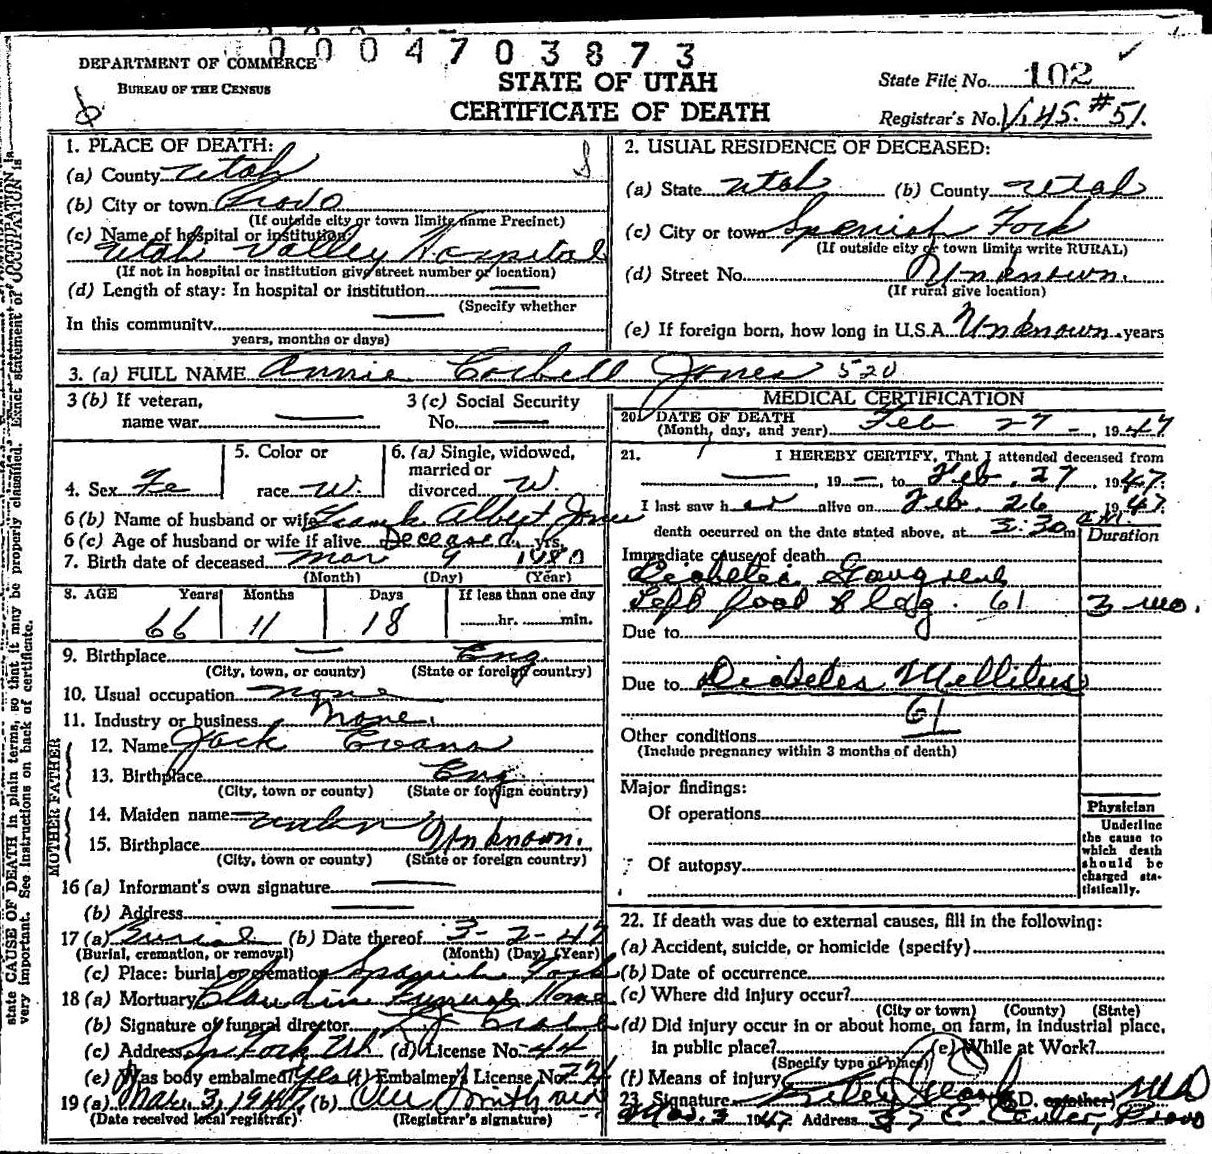 0004703873
DEPARTMENT OF COMMERCE
BUREAU OF THE CENSUS
STATE OF UTAH
CERTIFICATE OF DEATH
State File No. 102
Registrar's No. V.45. #51.
state CAUSE OF DEATH in plain terms, so that it may be properly classified. Exact statement of OCCUPATION is
very important. See instructions on back of certificate.
1. PLACE OF DEATH:
(a) County Utah
(b) City or town Provo
(If outside city or town limits name Precinct)
(c) Name of hospital or institution:
Utah Valley Hospital
(If not in hospital or institution give street number or location)
(d) Length of stay: In hospital or institution —
(Specify whether
In this community —
years, months or days)
2. USUAL RESIDENCE OF DECEASED:
(a) State Utah (b) County Utah
(c) City or town Spanish Fork
(If outside city or town limits write RURAL)
(d) Street No. Unknown.
(If rural give location)
(e) If foreign born, how long in U.S.A. Unknown years
3. (a) FULL NAME Annie Corbell Jones 520
3 (b) If veteran,
name war —
3 (c) Social Security
No. —
4. Sex Fe
5. Color or
race W.
6. (a) Single, widowed,
married or
divorced W
6 (b) Name of husband or wife Frank Albert Jones
6 (c) Age of husband or wife if alive Deceased yrs.
7. Birth date of deceased Mar 9 1880
(Month) (Day) (Year)
8. AGE Years Months Days If less than one day
66 11 18 hr. min.
9. Birthplace — Eng.
(City, town, or county) (State or foreign country)
10. Usual occupation none
11. Industry or business None.
FATHER
12. Name Jack Evans
13. Birthplace Eng.
(City, town or county) (State or foreign country)
MOTHER
14. Maiden name unkn
15. Birthplace Unknown.
(City, town or county) (State or foreign country)
16 (a) Informant's own signature —
(b) Address
17 (a) Burial (b) Date thereof 3-2-47
(Burial, cremation, or removal) (Month) (Day) (Year)
(c) Place: burial or cremation Spanish Fork
18 (a) Mortuary Claudin Funeral Home
(b) Signature of funeral director
(c) Address Sp Fork Ut (d) License No. 44
(e) Was body embalmed? Yes (f) Embalmer's License No.
19 (a) Mar. 3, 1947 (b)
(Date received local registrar) (Registrar's signature)
MEDICAL CERTIFICATION
20. DATE OF DEATH
(Month, day, and year) Feb 27 - , 1947
21. I HEREBY CERTIFY, That I attended deceased from
— , 19 — to Feb. 27, 1947.
I last saw her alive on Feb. 26, 1947
death occurred on the date stated above, at 3:30 a.m.
Duration
Immediate cause of death
Diabetic Gangrene
Left foot & leg. 61 3 mo.
Due to
Due to Diabetes Mellitus
61
Other conditions
(Include pregnancy within 3 months of death)
Major findings:
Of operations
Of autopsy
Physician
Underline
the cause to
which death
should be
charged sta-
tistically.
22. If death was due to external causes, fill in the following:
(a) Accident, suicide, or homicide (specify)
(b) Date of occurrence
(c) Where did injury occur?
(City or town) (County) (State)
(d) Did injury occur in or about home, on farm, in industrial place,
in public place? (e) While at Work?
(Specify type of place)
(f) Means of injury
23 Signature (M.D. or other) MD
Mar. 3 1947 Address 37 E. Center, Provo